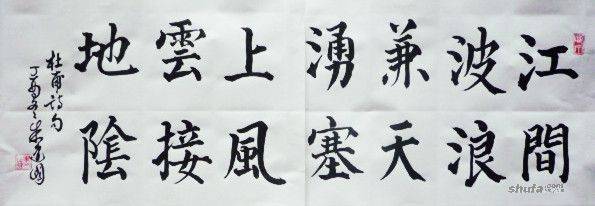 江間
波浪
兼天
湧塞
上風
雲接
地陰
杜甫詩句
shufa.com